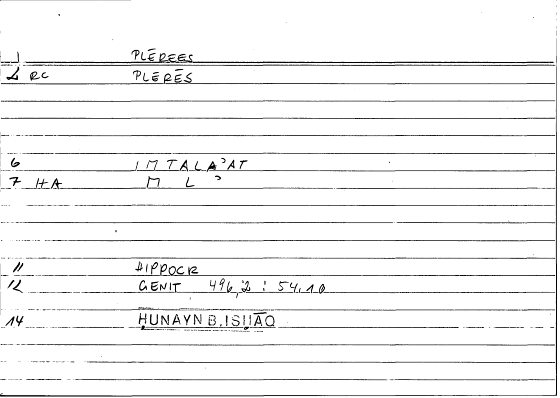 1 PLĒREES
2 RC PLĒRĒS
6 IMTALAʾAT
7 HA M L ʾ
11 HIPPOCR
12 GENIT 496,2 : 54,10
14 ḤUNAYN B. ISḤĀQ